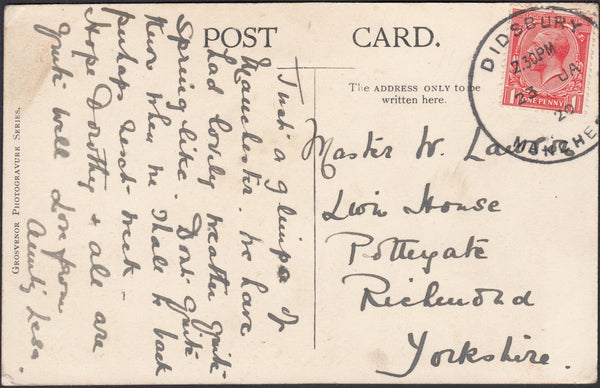 POST CARD.
The ADDRESS ONLY to be
written here.
GROSVENOR PHOTOGRAVURE SERIES.
Just a glimpse of
Manchester. We have
had lovely weather quite
Spring like. Don't quite
know when we shall be back
perhaps next week –
Hope Dorothy & all are
quite well Love from
Aunty
Master W.
Lion House
Pottergate
Richmond
Yorkshire.
DIDSBURY
2.30PM
23 JA
20
MANCHE
1 PENNY 1